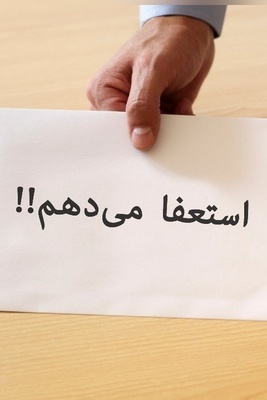 استعفا می‌دهم!!